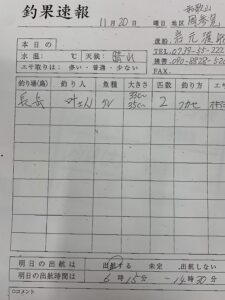 釣果速報
11月20日 曜日 地区 和歌山 周参見
渡船 岩元渡船
TEL. 0739-55-222
本日の
水温: ℃ 天候: 晴れ 携帯 090-8828-520
エサ取りは: 多い・普通・少ない FAX.
釣り場(島) 釣り人 魚種 大きさ 匹数 釣り方 エサ
叶さん グレ 33cm~35cm 2 フカセ
明日の出航は 出航する 未定 出航しない
明日の出航時間は 6時15分 ー 14時30分
○コメント